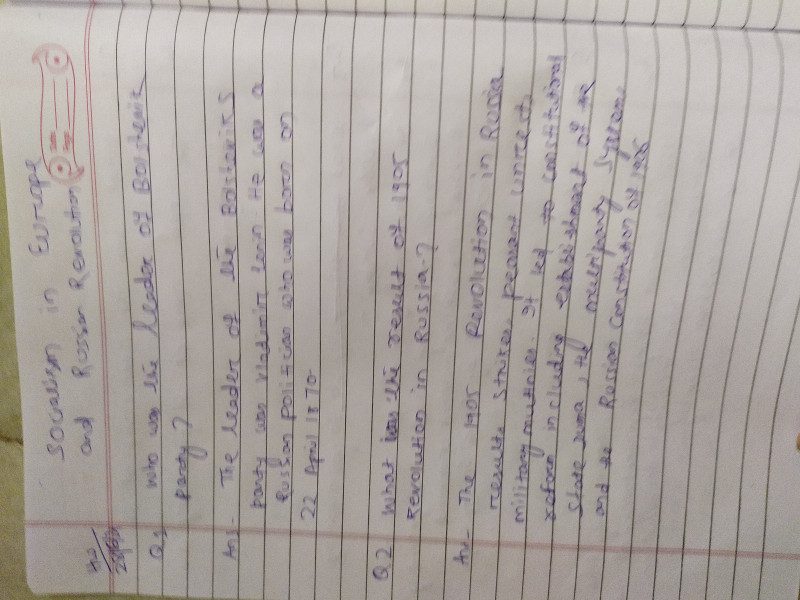 Socialism in Europe
and Russian Revolution
Q1 who was the leader of Bolshevik
party?
Ans- The leader of the Bolsheviks
party was Vladimir Lenin He was a
Russian politician who was born on
22 April 1870.
Q2 What was the result of 1905
Revolution in Russia?
An- The 1905 Revolution in Russia
results strikes, peasant unrest,
military mutinies. It led to constitutional
reform including establishment of the
State Duma, the multiparty System,
and the Russian Constitution of 1906